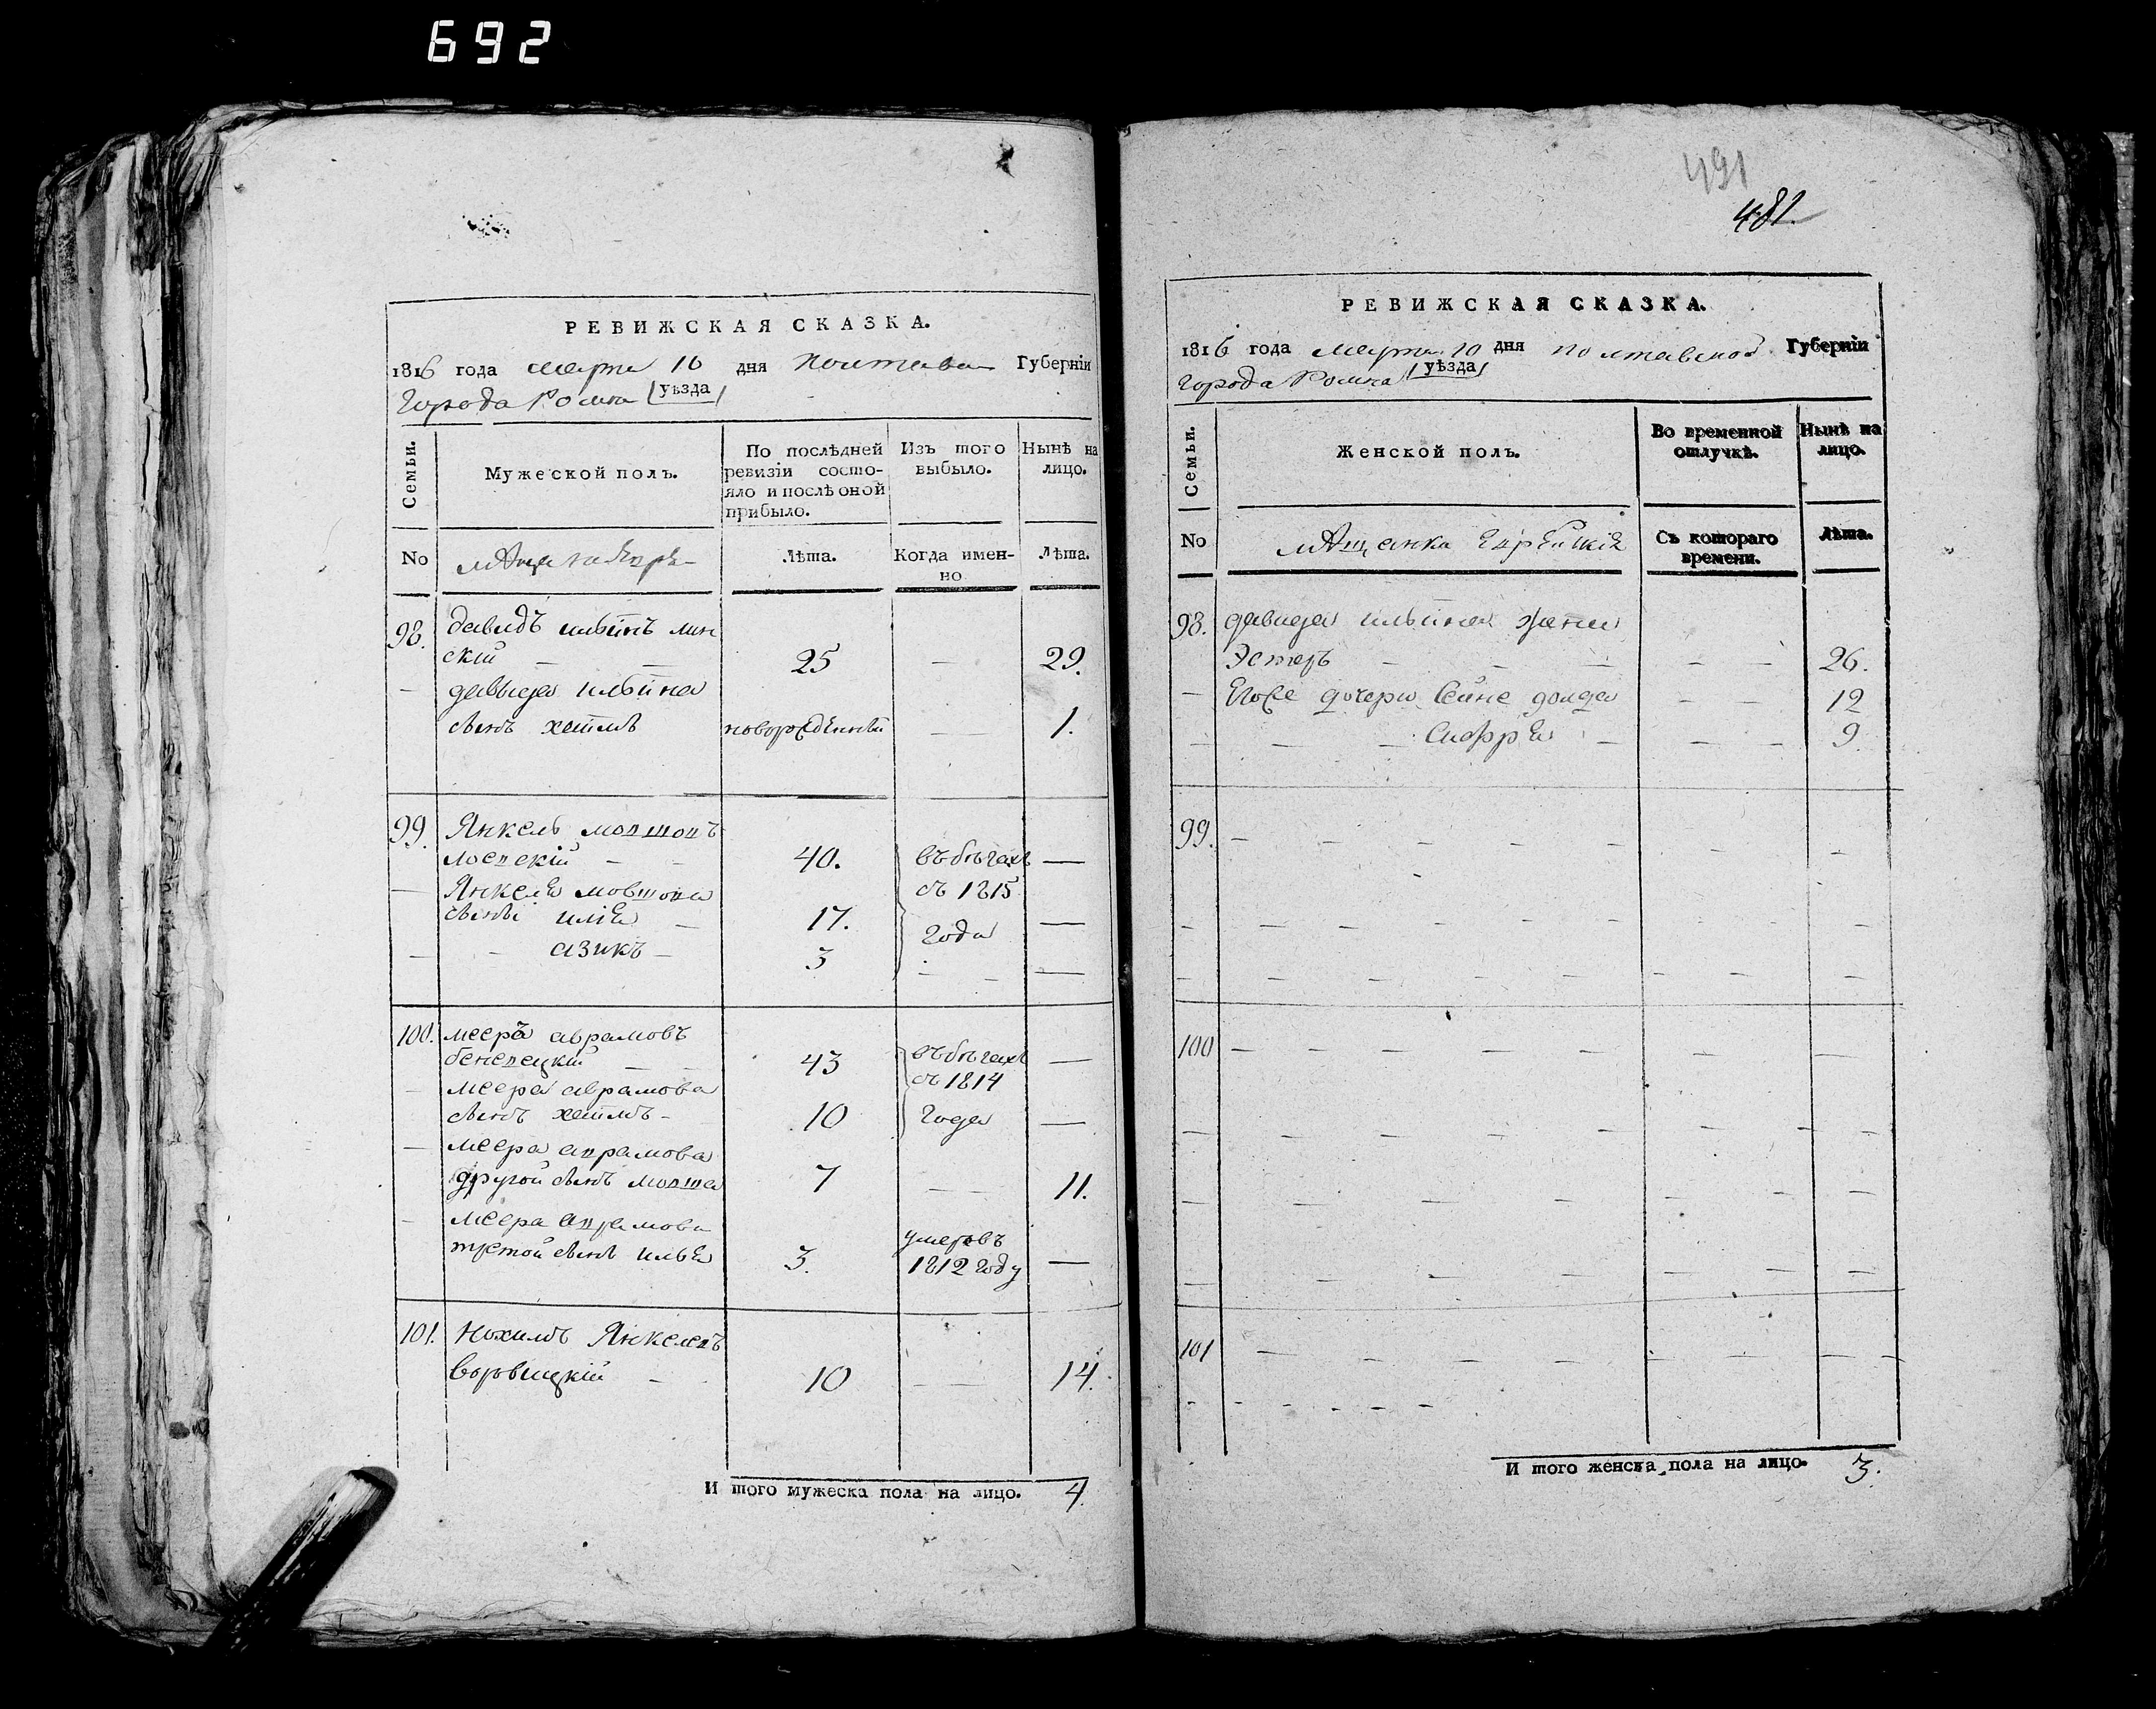 692
РЕВИЖСКАЯ СКАЗКА.
1816 года марта 10 дня Полтавск Губернiи
Города Ромна (уѣзда)
Семьи.
Мужеской полъ.
По послѣдней ревизiи состояло и послѣ оной прибыло.
Изъ того выбыло.
Нынѣ на лицо.
No
Лѣта.
Когда именно
Лѣта.
98. давидъ ильинъ мин
скiй — — 25 — 29.
— давыда ильина
сынъ хаимъ новорожденный — — 1.
99. Янкель мовшовъ
лоевскiй — — 40. въ бѣгахъ —
— Янкеля мовшова съ 1815
сынъ илiя — 17. года —
— — азикъ — 3 — — —
100. мееръ аврамовъ
беневецкiй — — 43 въ бѣгахъ —
— меера аврамова съ 1814
сынъ хаимъ — 10 года —
— меера аврамова
другой сынъ мовша 7 — — 11.
— меера аврамова
третой сынъ илья 3. умеръ въ 1812 году —
101. Нохимъ Янкелевъ
воровицкiй — - 10 — — 14.
И того мужеска пола на лицо. 4.
491
481.
РЕВИЖСКАЯ СКАЗКА.
1816 года марта 10 дня полтавской Губернiи
города Ромна (уѣзда)
Семьи.
Женской полъ.
Во временной отлучкѣ.
Нынѣ на лицо.
No
мѣщанка Еврейскiя
Съ котораго времени.
Лѣта.
98. давида ильина жена
Эстеръ — — — — — 26.
— Его же дочери Сейне голда — — 12
— — — Сифря — — — 9
99. — — — — — — — —
- — — — — — — — —
- — — — — — — — —
100 — — — — — — — —
— — — — — — — — —
— — — — — — — — —
— — — — — — — — —
101 — — — — — — — —
- - - - - - -
И того женска пола на лицо. 3.